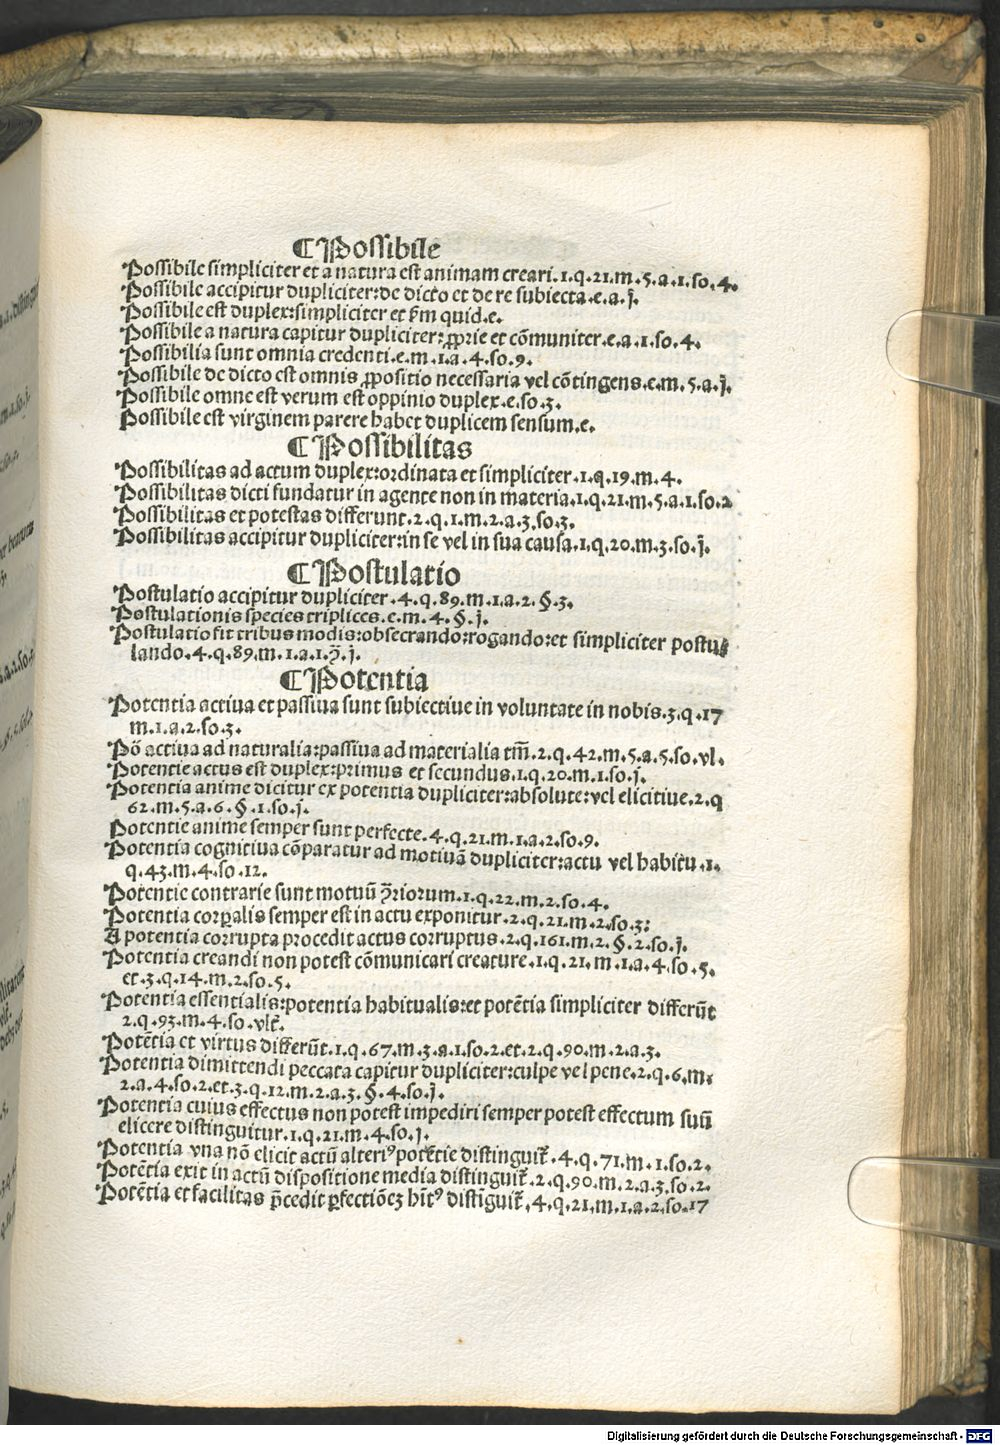 ¶Possibile
Possibile simpliciter et a natura est animam creari.1.q.21.m.5.a.1.so.4.
Possibile accipitur dupliciter:de dicto et de re subiecta.e.a.j.
Possibile est duplex:simpliciter et ẜm quid.e.
Possibile a natura capitur dupliciter:ꝓprie et cōmuniter.e.a.1.so.4.
Possibilia sunt omnia credenti.e.m.1.a.4.so.9.
Possibile de dicto est omnis ꝓpositio necessaria vel cōtingens.e.m.5.a.j.
Possibile omne est verum est oppinio duplex.e.so.3.
Possibile est virginem parere habet duplicem sensum.e.
¶Possibilitas
Possibilitas ad actum duplex:ordinata et simpliciter.1.q.19.m.4.
Possibilitas dicti fundatur in agente non in materia.1.q.21.m.5.a.1.so.2
Possibilitas et potestas differunt.2.q.1.m.2.a.3.so.3.
Possibilitas accipitur dupliciter:in se vel in sua causa.1.q.20.m.3.so.j.
¶Postulatio
Postulatio accipitur dupliciter.4.q.89.m.1.a.2.§.3.
Postulationis species triplices.e.m.4.§.j.
Postulatio fit tribus modis:obsecrando:rogando:et simpliciter postu⸗
lando.4.q.89.m.1.a.1.ꝯ̄.j.
¶Potentia
Potentia actiua et passiua sunt subiectiue in voluntate in nobis.3.q.17
m.1.a.2.so.3.
Pō actiua ad naturalia:passiua ad materialia tm̄.2.q.42.m.5.a.5.so.vl.
Potentie actus est duplex:primus et secundus.1.q.20.m.1.so.j.
Potentia anime dicitur ex potentia dupliciter:absolute:vel elicitiue.2.q
62.m.5.a.6.§.1.so.j.
Potentie anime semper sunt perfecte.4.q.21.m.1.a.2.so.9.
Potentia cognitiua cōparatur ad motiuā dupliciter:actu vel habitu.1.
q.43.m.4.so.12.
Potentie contrarie sunt motuū p̄riorum.1.q.22.m.2.so.4.
Potentia corꝑalis semper est in actu exponitur.2.q.21.m.2.so.3:
A potentia corrupta procedit actus corruptus.2.q.161.m.2.§.2.so.j.
Potentia creandi non potest cōmunicari creature.1.q.21.m.1.a.4.so.5.
et.3.q.14.m.2.so.5.
Potentia essentialis:potentia habitualis:et potētia simpliciter differūt
2.q.93.m.4.so.vlt̄.
Potētia et virtus differūt.1.q.67.m.3.a.1.so.2.et.2.q.90.m.2.a.3.
Potentia dimittendi peccata capitur dupliciter:culpe vel pene.2.q.6.m.
2.a.4.so.2.et.3.q.12.m.2.a.3.§.4.so.j.
Potentia cuius effectus non potest impediri semper potest effectum suū
elicere distinguitur.1.q.21.m.4.so.j.
Potentia vna nō elicit actū alteriꝰ potētie distinguit̄.4.q.71.m.1.so.2.
Potētia exit in actū dispositione media distinguit̄.2.q.90.m.2.a.3.so.2.
Potētia et facilitas p̄cedit ꝑfectiōeꝫ hn̄tꝰ distiguit̄.4.q.21.m.1.a.2.so.17
Digitalisierung gefördert durch die Deutsche Forschungsgemeinschaft - DFG